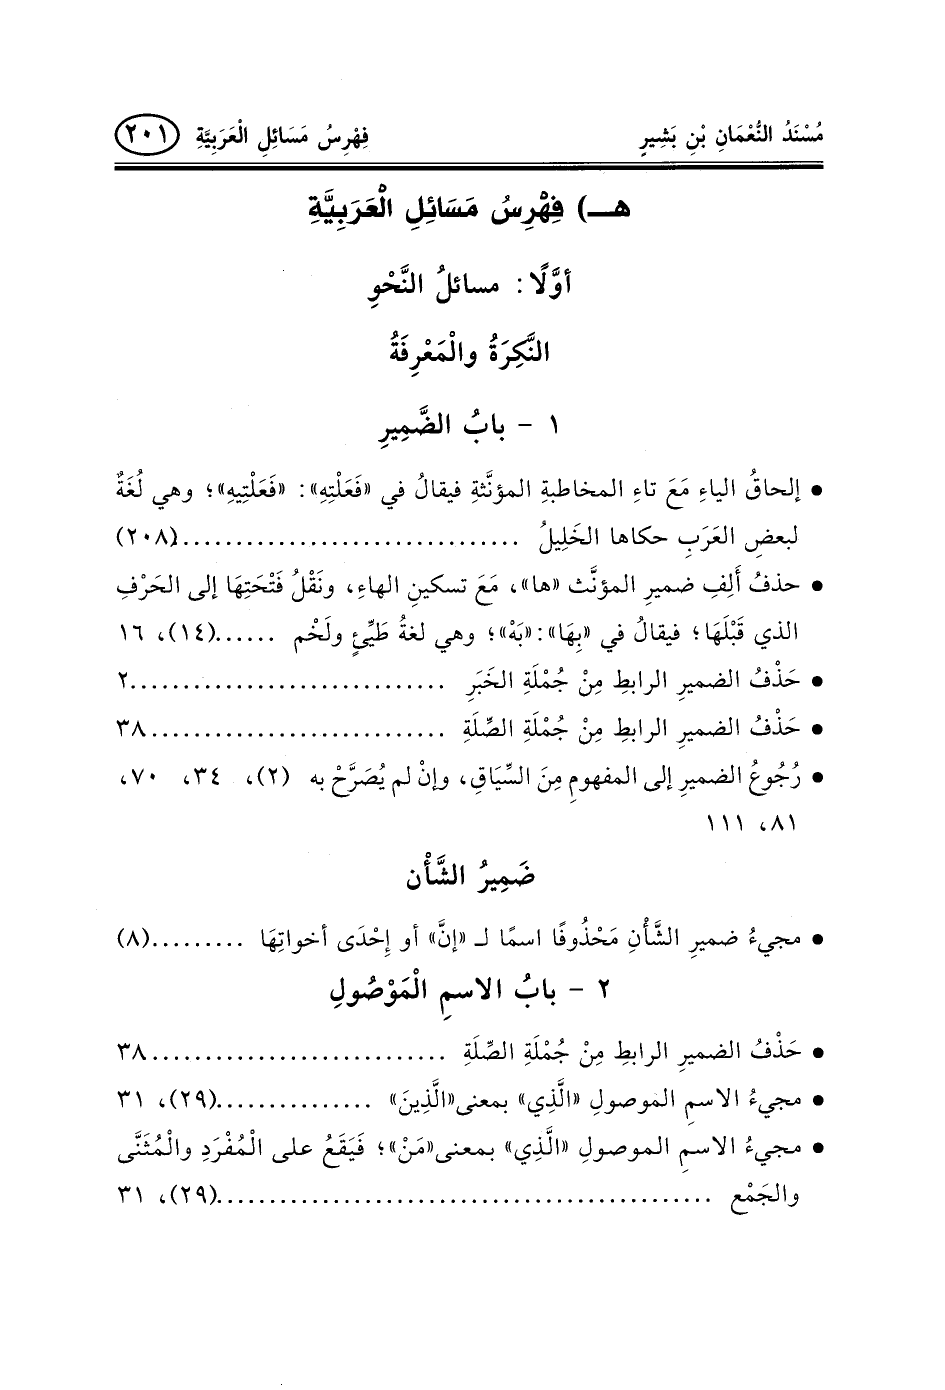 مُسْنَدُ النُّعْمَانِ بْنِ بَشِيرٍ فِهْرِسُ مَسَائِلِ الْعَرَبِيَّةِ ٢٠١
هـ) فِهْرِسُ مَسَائِلِ الْعَرَبِيَّةِ
أوَّلًا: مسائلُ النَّحْوِ
النَّكِرَةُ والْمَعْرِفَةُ
١ - بابُ الضَّمِيرِ
• إلحاقُ الياءِ مَعَ تاءِ المخاطبةِ المؤنَّثةِ فيقالُ في «فَعَلْتِهِ»: «فَعَلْتِيهِ»؛ وهي لُغَةٌ
لبعضِ العَرَبِ حكاها الخَلِيلُ ................................(٢٠٨)
• حذفُ أَلِفِ ضميرِ المؤنَّث «ها»، مَعَ تسكينِ الهاءِ، ونَقْلُ فَتْحَتِهَا إلى الحَرْفِ
الذي قَبْلَهَا؛ فيقالُ في «بِهَا»:«بَهْ»؛ وهي لغةُ طَيِّئٍ ولَخْم ......(١٤)، ١٦
• حَذْفُ الضميرِ الرابطِ مِنْ جُمْلَةِ الخَبَرِ ..............................٢
• حَذْفُ الضميرِ الرابطِ مِنْ جُمْلَةِ الصِّلَةِ ............................٣٨
• رُجُوعُ الضميرِ إلى المفهومِ مِنَ السِّيَاقِ، وإنْ لم يُصَرَّحْ به (٢)، ٣٤، ٧٠،
٨١، ١١١
ضَمِيرُ الشَّأْن
• مجيءُ ضميرِ الشَّأْنِ مَحْذُوفًا اسمًا لـ «إنَّ» أو إِحْدَى أخواتِهَا .........(٨)
٢ - بابُ الاسمِ الْمَوْصُولِ
• حَذْفُ الضميرِ الرابطِ مِنْ جُمْلَةِ الصِّلَةِ ............................٣٨
• مجيءُ الاسمِ الموصولِ «الَّذِي» بمعنى«الَّذِينَ» ...............(٢٩)، ٣١
• مجيءُ الاسمِ الموصولِ «الَّذِي» بمعنى«مَنْ»؛ فَيَقَعُ على الْمُفْرَدِ والْمُثَنَّى
والجَمْعِ ...............................................(٢٩)، ٣١